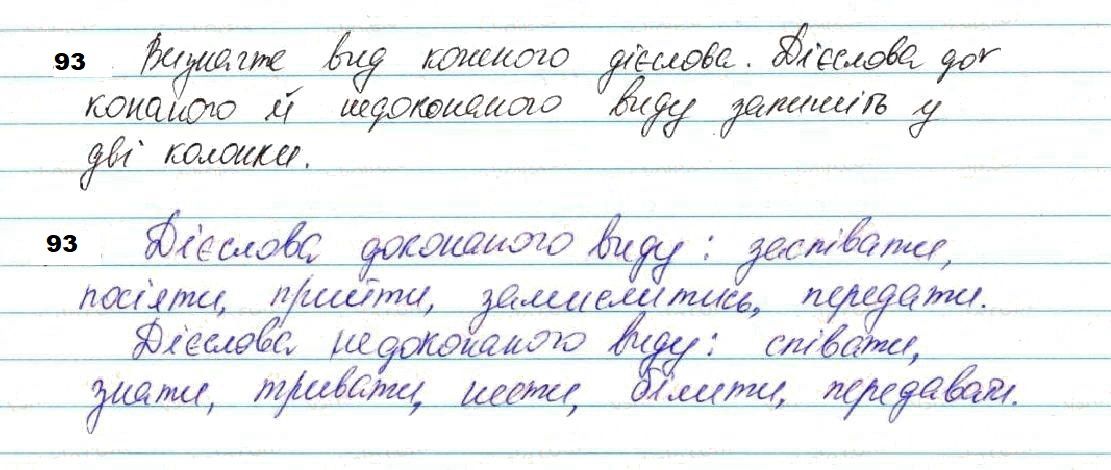 93 Визначте вид кожного дієслова. Дієслова до-
конаного й недоконаного виду запишіть у
дві колонки.
93 Дієслова доконаного виду: заспівати,
посіяти, прийти, замислитись, передати.
Дієслова недоконаного виду: співати,
знати, тривати, нести, білити, передавати.